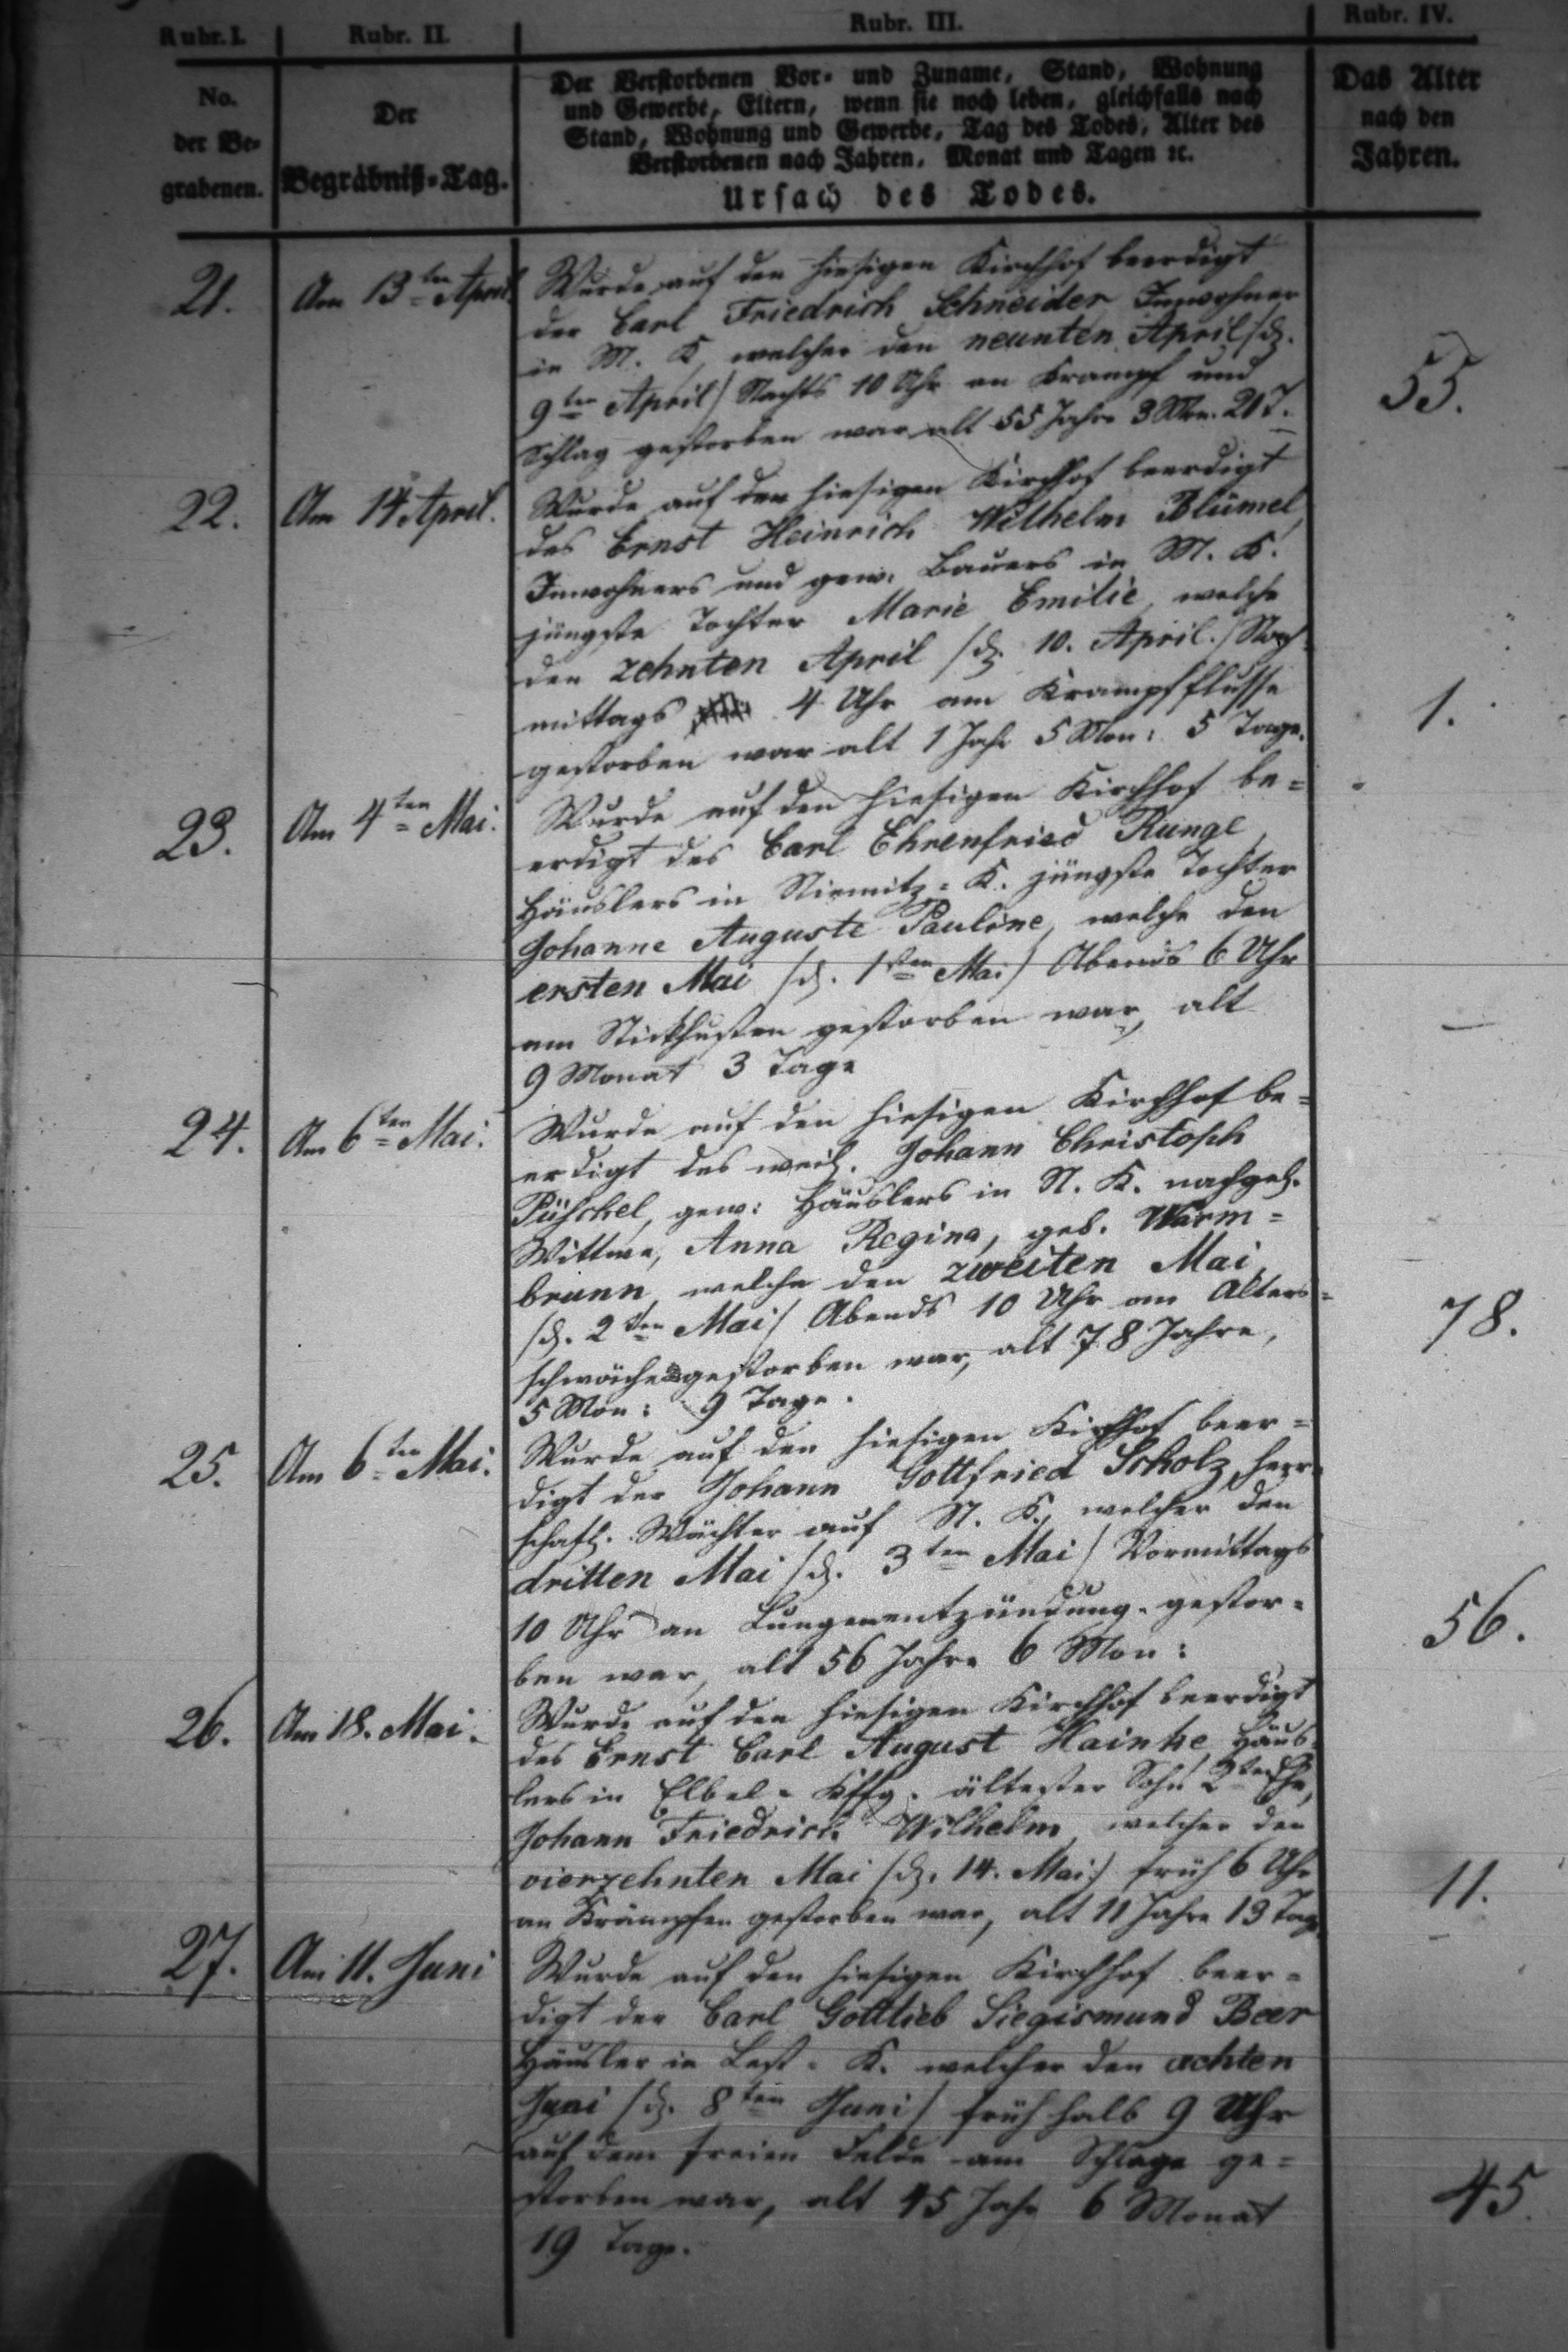 Rubr. I. Rubr. II. Rubr. III. Rubr. IV.
No.
der Be-
grabenen.
Der
Begräbniß-Tag.
Der Verstorbenen Vor- und Zuname, Stand, Wohnung
und Gewerbe, Eltern, wenn sie noch leben, gleichfalls nach
Stand, Wohnung und Gewerbe, Tag des Todes, Alter des
Verstorbenen nach Jahren, Monat und Tagen ꝛc.
Ursach des Todes.
Das Alter
nach den
Jahren.
21. Am 13ten April. Wurde auf den hiesigen Kirchhof beerdigt
der Carl Friedrich Schneider Inwohner
in M. K, welcher den neunten April /d.
9ten April/ Nachts 10 Uhr an Krampf und
Schlag gestorben war alt 55 Jahr 3 Mon. 21 T.
55.
22. Am 14 April. Wurde auf den hiesigen Kirchhof beerdigt
des Ernst Heinrich Wilhelm Blümel,
Inwohners und gew. Bauers in M. K.
jüngste Tochter Marie Emilie, welche
den zehnten April /d. 10. April./ Nach-
mittags 4 Uhr am Krampfflusse
gestorben war alt 1 Jahr 5 Mon: 5 Tage.
1.
23. Am 4ten Mai. Wurde auf den hiesigen Kirchhof be=
erdigt des Carl Ehrenfried Runge,
Häuslers in Niemitz=K. jüngste Tochter
Johanne Auguste Pauline, welche den
ersten Mai /d. 1sten Mai/ Abends 6 Uhr
am Stickhusten gestorben war, alt
9 Monat 3 Tage
—
24. Am 6ten Mai. Wurde auf den hiesigen Kirchhof be=
erdigt des weil. Johann Christoph
Püschel, gew: Häuslers in N. K. nachgel.
Wittwe, Anna Regina, geb. Warm=
brunn, welche den zweiten Mai
/d. 2ten Mai/ Abends 10 Uhr an Alters=
schwäche gestorben war, alt 78 Jahre,
5 Mon: 9 Tage.
78.
25. Am 6ten Mai. Wurde auf den hiesigen Kirchhof beer=
digt der Johann Gottfried Scholz, herr-
schaftl. Wächter auf N. K., welcher den
dritten Mai /d. 3ten Mai/ Vormittags
10 Uhr an Lungenentzündung gestor=
ben war, alt 56 Jahre 6 Mon:
56.
26. Am 18. Mai. Wurde auf den hiesigen Kirchhof beerdigt
des Ernst Carl August Hainke, Häus-
lers in Elbel=Kffg. ältester Sohn 2ter Ehe,
Johann Friedrich Wilhelm, welcher den
vierzehnten Mai /d. 14. Mai/ früh 6 Uhr
an Krämpfen gestorben war, alt 11 Jahre 13 Tag.
11.
27. Am 11. Juni Wurde auf den hiesigen Kirchhof beer=
digt der Carl Gottlieb Siegismund Beer
Häusler in Lest=K. welcher den achten
Juni /d. 8ten Juni/ früh halb 9 Uhr
auf dem freien Felde am Schlage ge=
storben war, alt 45 Jahr 6 Monat
19 Tage.
45